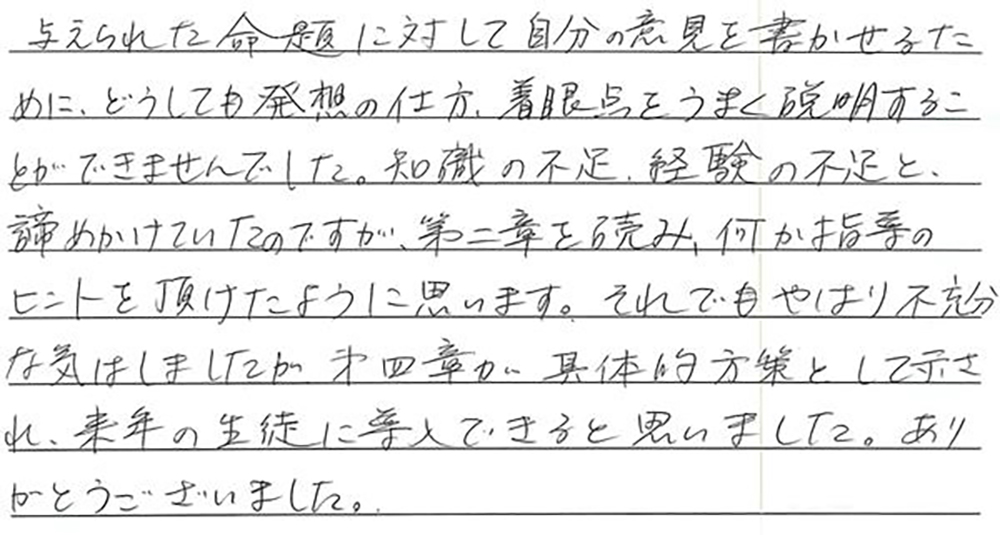 与えられた命題に対して自分の意見を書かせるた
めに、どうしても発想の仕方、着眼点をうまく説明するこ
とができませんでした。知識の不足、経験の不足と、
諦めかけていたのですが、第二章を読み、何か指導の
ヒントを頂けたように思います。それでもやはり不充分
な気はしましたが、第四章が、具体的方策として示さ
れ、来年の生徒に導入できると思いました。あり
がとうございました。